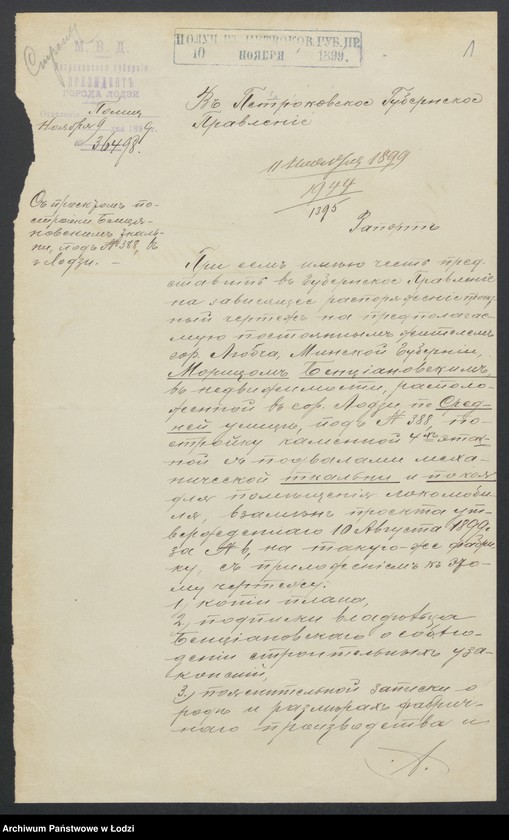 Строит
М. В. Д.
Петроковской губерніи
ПРЕЗИДЕНТЪ
ГОРОДА ЛОДЗИ
Отдѣленіе Полиц
Ноября 9 дня 1899 г.
№ 36498
ПОЛУЧ. ВЪ ПЕТРОКОВ. ГУБ. ПР.
10 НОЯБРЯ 1899.
1
Въ Петроковское Губернское
Правленіе
11 Ноября 1899
1944
1395
Рапортъ
Съ проектомъ по-
стройки Бенція-
новскимъ ткаль-
ни, подъ № 388, въ
г. Лодзи. —
При семъ имѣю честь пред-
ставить въ Губернское Правленіе
на зависящее распоряженіе
ный чертежъ на предполагае-
мую постояннымъ жителемъ
гор. Любча, Минской Губерніи,
Морицомъ Бенціановскимъ,
въ недвижимости, располо-
женной въ гор. Лодзи по Сред-
ней улицѣ, подъ № 388, по-
стройку каменной 4хъ этаж-
ной съ подвалами меха-
нической ткальни и покоя
для помѣщенія локомоби-
ля, взамѣнъ проекта ут-
вержденнаго 10 Августа 1899 г.
за №, на такую-же фабри-
ку, съ приложеніемъ къ это-
му чертежу:
1) копіи плана,
2) подписки владѣльца
Бенціановскаго о соблю-
деніи строительныхъ уза-
коненій,
3) пояснительной записки о
родѣ и размѣрахъ фабрич-
наго производства и